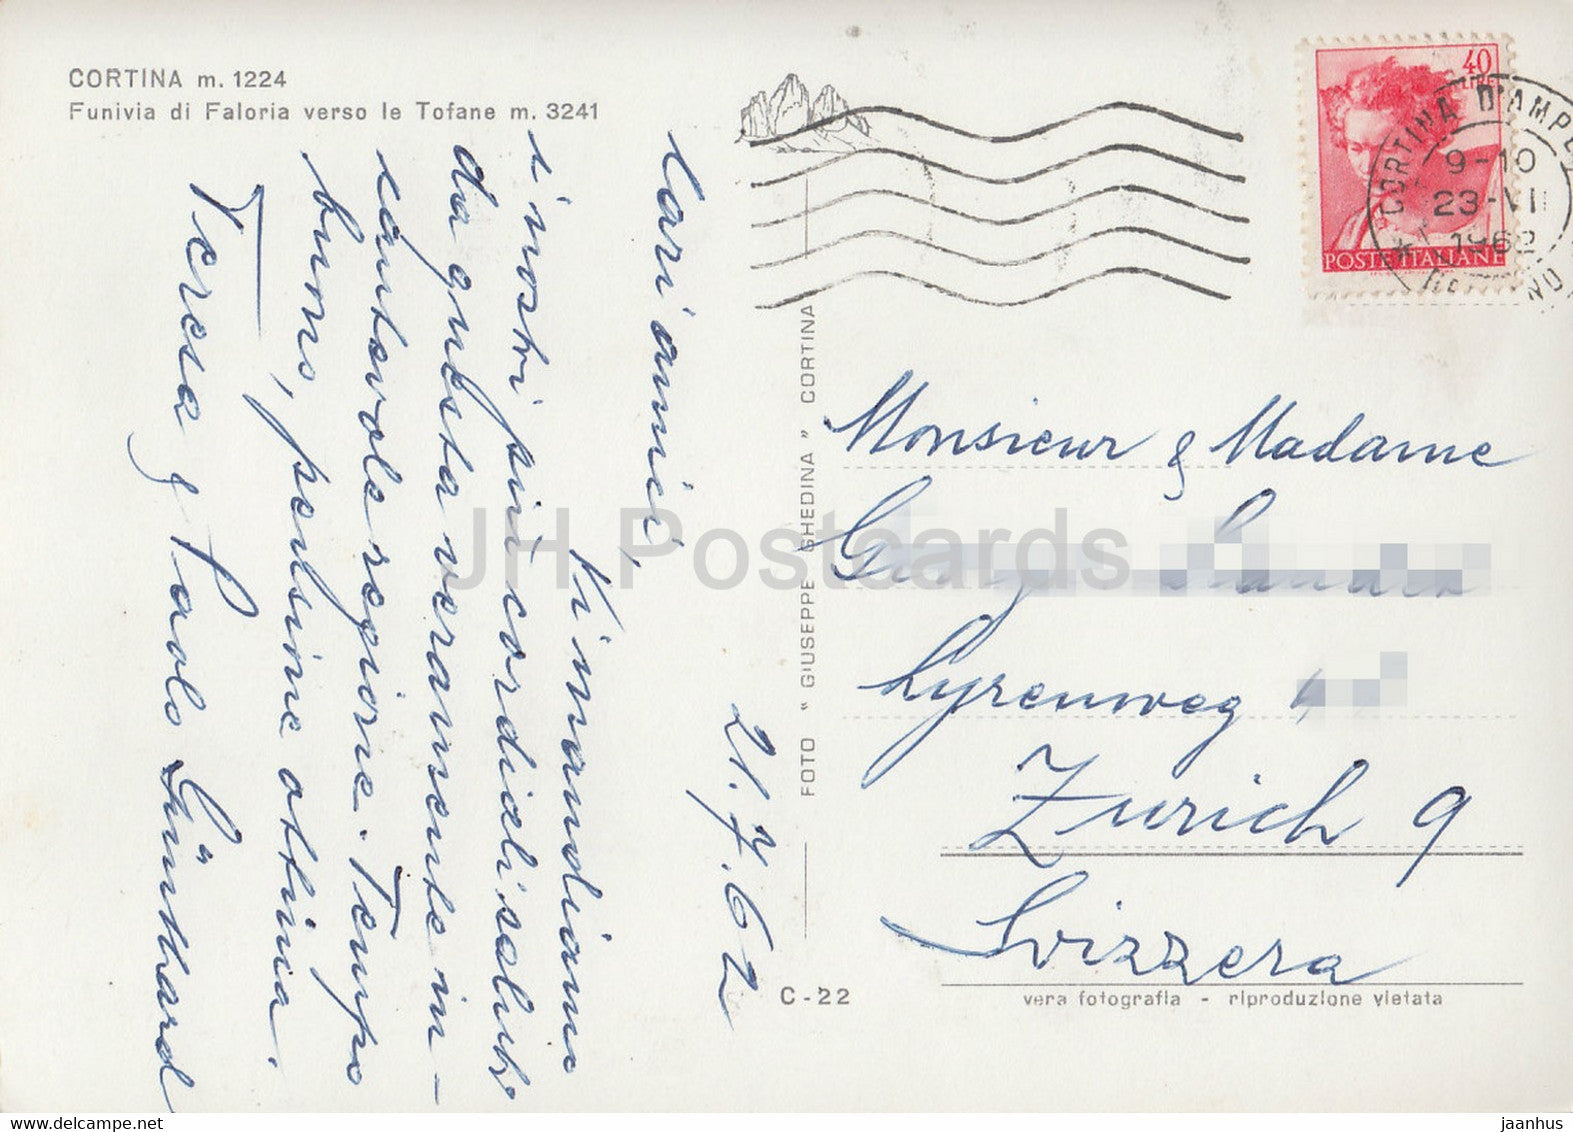 CORTINA m. 1224
Funivia di Faloria verso le Tofane m. 3241
21.7.62
Cari amici,
Vi mandiamo
i nostri più cordiali saluti
da questa veramente in-
cantevole regione. Tempo
buono, pensione ottima.
Teresa e Paolo Günthard
FOTO " GIUSEPPE GHEDINA " CORTINA
C - 22
40
LIRE
POSTE ITALIANE
CORTINA D'AMPE
9-10
23-VII
1962
Monsieur & Madame
Lyrenweg
Zurich 9
Svizzera
vera fotografia - riproduzione vietata
JH Postcards
jaanhus
delcampe.net